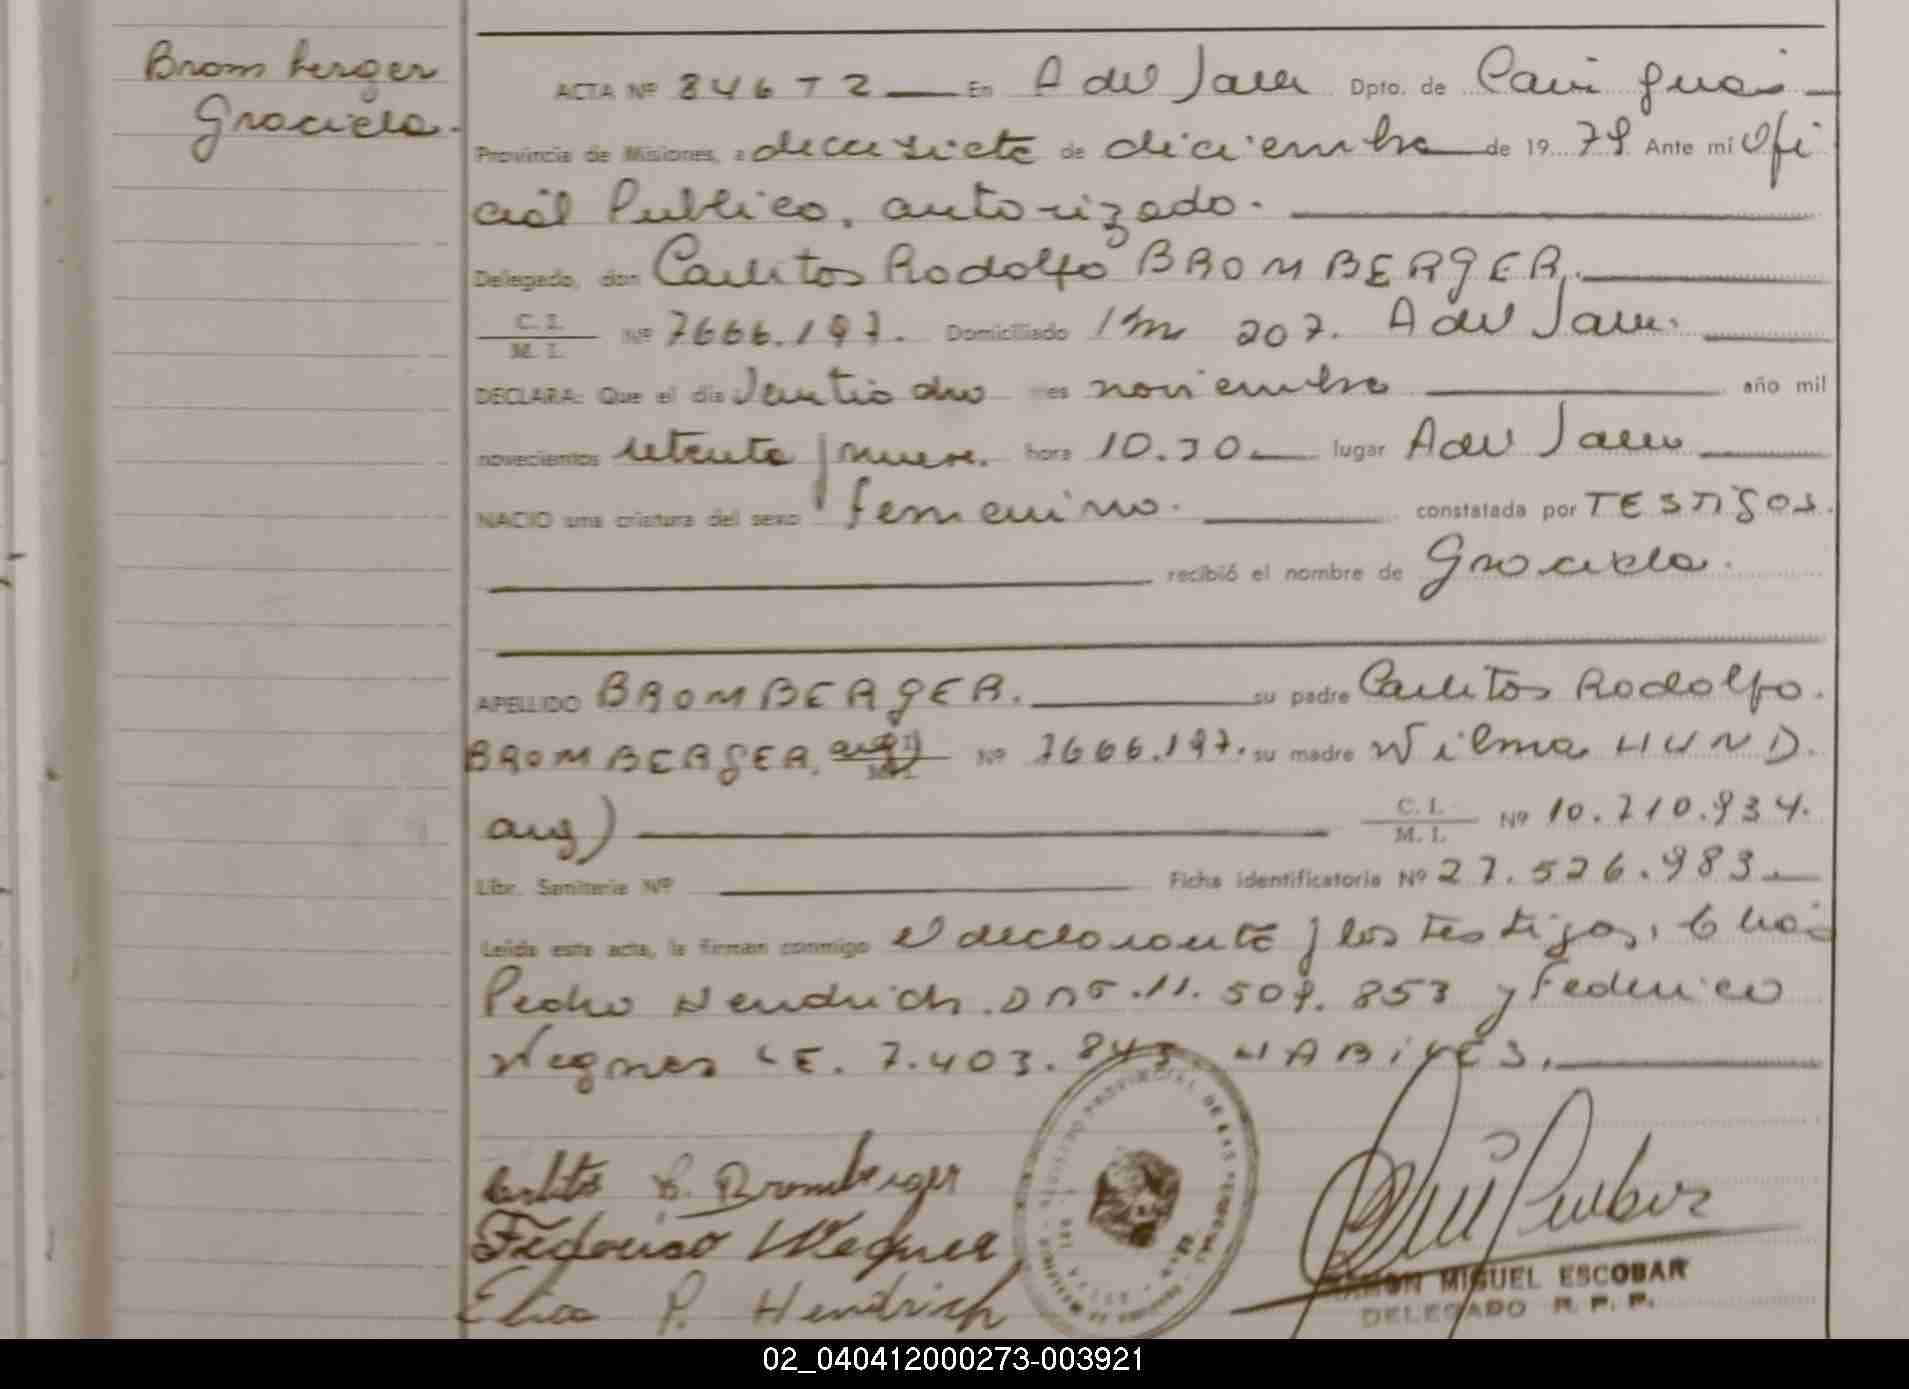 Bromberger
Graciela.
ACTA Nº 846 T 2 En A del Valle Dpto. de Cainguás
Provincia de Misiones, a diecisiete de diciembre de 19 79 Ante mi Ofi
cial Publico, autorizado.
Delegado, don Carlitos Rodolfo BROMBERGER.
C. I.
M. I.
Nº 7666.197. Domiciliado Km 207. A del Valle.
DECLARA: Que el dia veintiocho mes noviembre año mil
novecientos setenta y nueve. hora 10.30 lugar A del Valle
NACIO una criatura del sexo femenino. constatada por TESTIGOS.
recibió el nombre de Graciela.
APELLIDO BROMBERGER. su padre Carlitos Rodolfo.
BROMBERGER. arg) Nº 7666.197. su madre Wilma HUND.
arg) C. I.
M. I. Nº 10.210.934.
Libr. Sanitaria Nº Ficha identificatoria Nº 27.526.983.
Leída esta acta, la firman conmigo el declarante y los testigos,
Pedro Hendrich. DNI. 11.509.853 y Federico
Wegner LE. 7.403.843 HABILES.
Carlitos R. Bromberger
Federico Wegner
P. Hendrich
RAMON MIGUEL ESCOBAR
DELEGADO R. P. P.
02_040412000273-003921